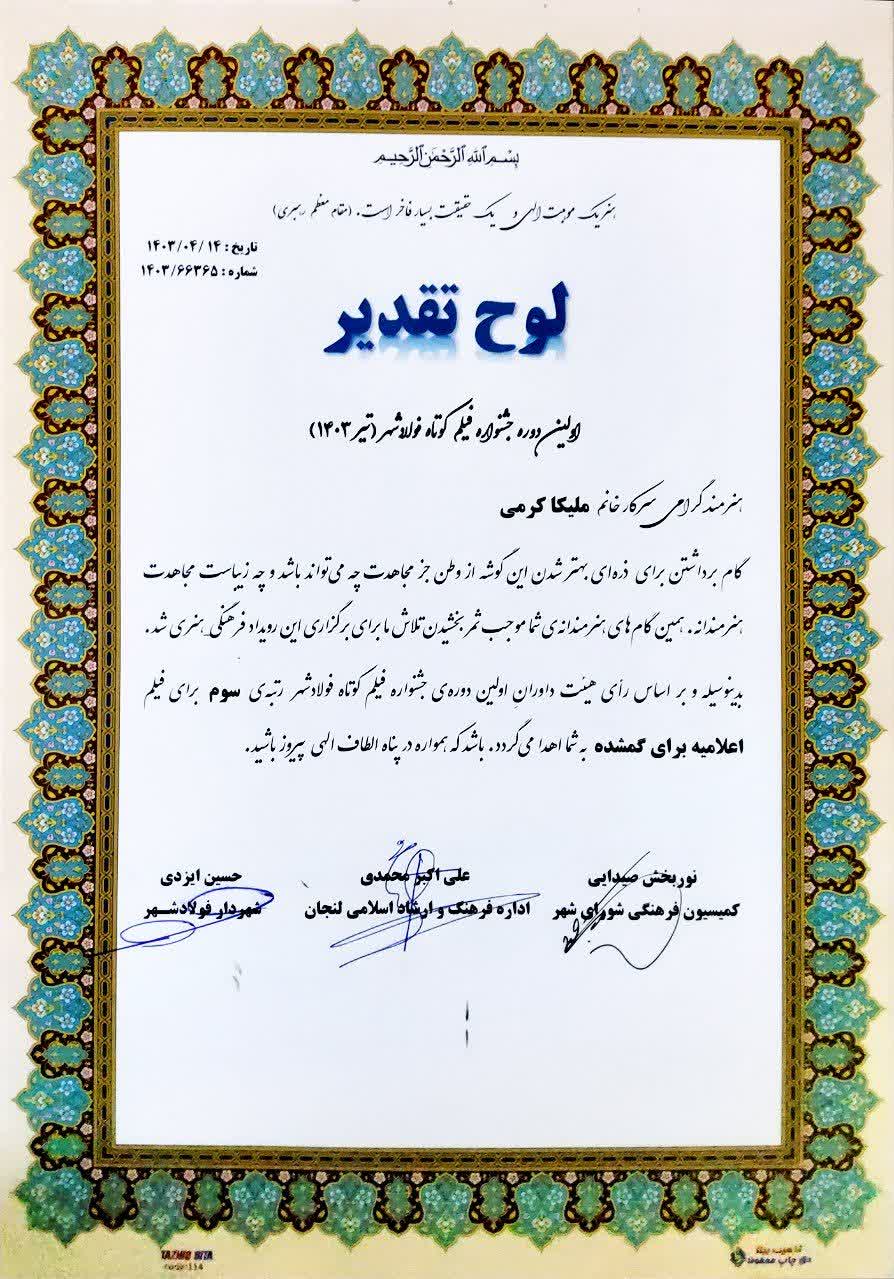 بسم الله الرحمن الرحیم
هنر یک موهبت الهی و یک حقیقت بسیار فاخر است. (مقام معظم رهبری)
تاریخ : ۱۴۰۳/۰۴/۱۴
شماره : ۱۴۰۳/۶۶۳۶۵
لوح تقدیر
اولین دوره جشنواره فیلم کوتاه فولادشهر (تیر ۱۴۰۳)
هنرمند گرامی سرکار خانم ملیکا کرمی
گام برداشتن برای ذره‌ای بهتر شدن این گوشه از وطن جز مجاهدت چه می‌تواند باشد و چه زیباست مجاهدت
هنرمندانه. همین گام های هنرمندانه‌ی شما موجب ثمر بخشیدن تلاش ما برای برگزاری این رویداد فرهنگی هنری شد.
بدینوسیله و بر اساس رأی هیئت داوران اولین دوره‌ی جشنواره فیلم کوتاه فولادشهر رتبه‌ی سوم برای فیلم
اعلامیه برای گمشده به شما اهدا می‌گردد. باشد که همواره در پناه الطاف الهی پیروز باشید.
نوربخش صیدایی علی اکبر محمدی حسین ایزدی
کمیسیون فرهنگی شورای شهر اداره فرهنگ و ارشاد اسلامی لنجان شهردار فولادشهر
TAZHIB BITA
code:114
تذهیب بیتا
حق چاپ محفوظ